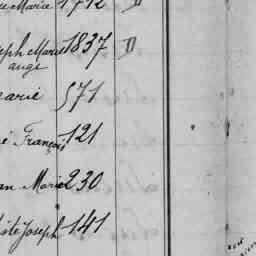 Marie 1712 D
eph Marie 1837 D
ange
arie 571
é François 121
an Marie 230
Joseph 141